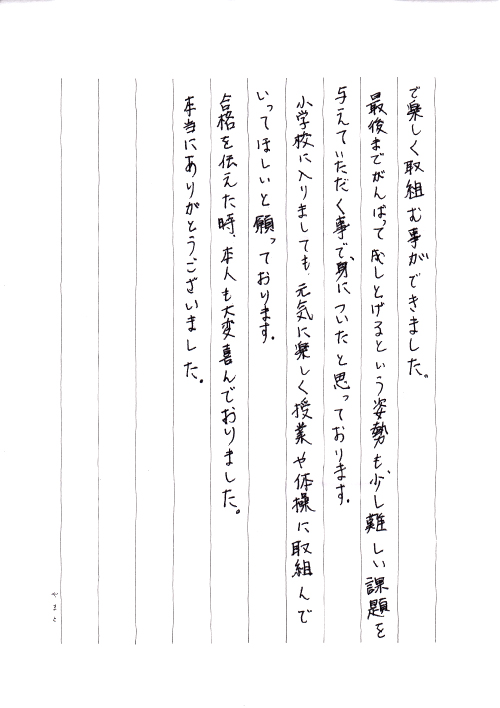 で楽しく取組む事ができました。
最後までがんばって成しとげるという姿勢も、少し難しい課題を
与えていただく事で、身についたと思っております。
小学校に入りましても、元気に楽しく授業や体操に取組んで
いってほしいと願っております。
合格を伝えた時、本人も大変喜んでおりました。
本当にありがとうございました。
やまと